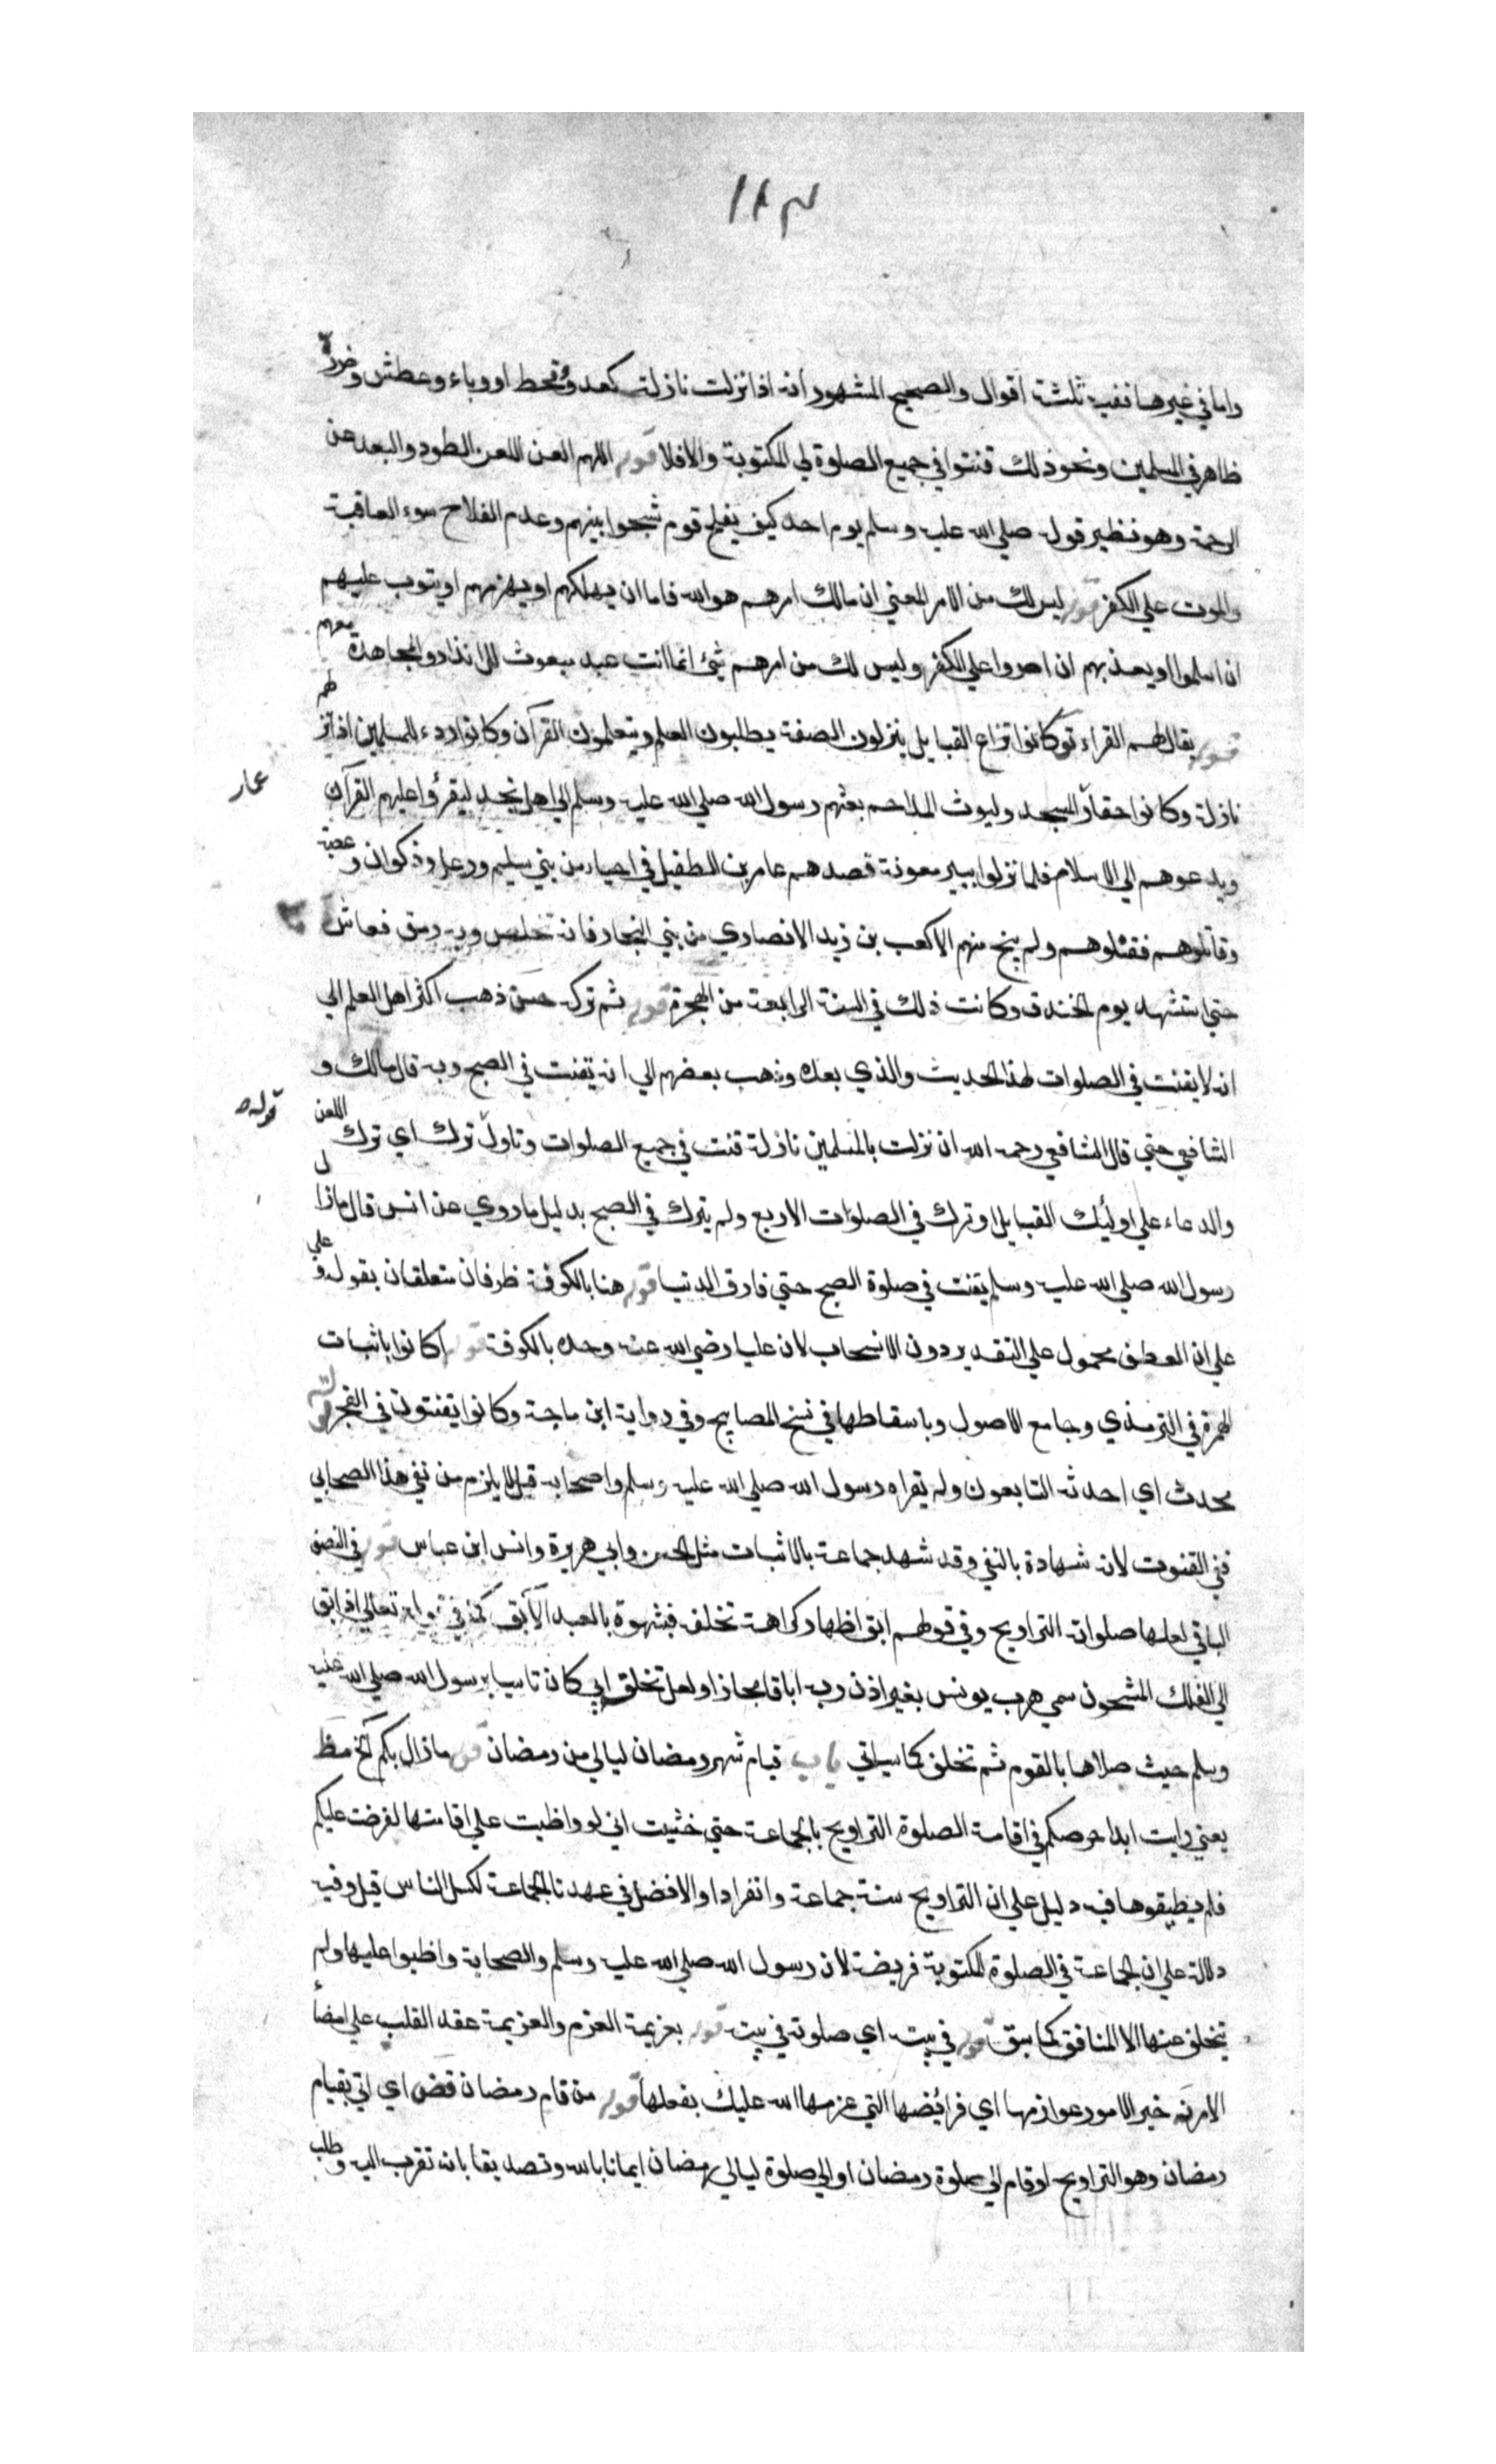 ١٨٣
واما في غيرها ففيه ثلثة اقوال والصحيح المشهور انه اذا نزلت نازلة كعدو وقحط او وباء وعطش وضرر
ظاهر في المسلمين ونحو ذلك قنتوا في جميع الصلوة لي المكتوبة والا فلا قوله اللهم العن اللعن الطرد والبعد عن
الرحمة وهو نظير قوله صلي الله عليه وسلم يوم احد كيف يفلح قوم شجوا بينهم وعدم الفلاح سوء العاقبة
والموت علي الكفر قوله ليس لك من الامر المعني ان مالك امرهم هو الله فاما ان يهلكهم او يهزمهم او يتوب عليهم
ان اسلموا او يعذبهم ان اصروا علي الكفر وليس لك من امرهم شئ انما انت عبد مبعوث للانذار والمجاهدة معهم
قوله يقال لهم القراء تو كانوا نزاع القبايل ينزلون الصفة يطلبون العلم ويتعلمون القرآن وكانوا ردء للمسلمين اذا نزلهم
نازلة وكانوا حقا عمار المسجد وليوث الملاحم بعثهم رسول الله صلي الله عليه وسلم الي اهل نجد ليقرؤا عليهم القرآن
ويدعوهم الي الاسلام فلما نزلوا ببير معونة قصدهم عامر بن الطفيل في احياء من بني سليم ورعل وذكوان وعصية
وقاتلوهم فقتلوهم ولم ينج منهم الا كعب بن زيد الانصاري من بني النجار فانه تخلص وبه رمق فعاش
حتي استشهد يوم الخندق وكانت ذلك في السنة الرابعة من الهجرة قوله ثم تركه حسن ذهب اكثر اهل العلم الي
انه لا يقنت في الصلوات لهذا الحديث والذي بعده وذهب بعضهم الي انه يقنت في الصبح وبه قال مالك و
الشافعي حتي قال الشافعي رحمه الله ان نزلت بالمسلمين نازلة قنت في جميع الصلوات وتاول قوله ترك اي ترك اللعن
والدعاء علي اولئك القبايل او ترك في الصلوات الاربع ولم يترك في الصبح بدليل ما روي عن انس قال ما زال
رسول الله صلي الله عليه وسلم يقنت في صلوة الصبح حتي فارق الدنيا قوله هنا بالكوفة ظرفان متعلقان بقوله وعلي
علي ان العطف محمول علي التقدير دون الانسحاب لان عليا رضي الله عنه وحده بالكوفة قوله اكانوا باثبات
الهمزة في الترمذي وجامع الاصول وباسقاطها في نسخ المصابيح وفي رواية ابن ماجة وكانوا يقنتون في الفجر قوله
محدث اي احدثه التابعون ولم يقراه رسول الله صلي الله عليه وسلم واصحابه قيل لا يلزم من نفي هذا الصحابي
نفي القنوت لانه شهادة بالنفي وقد شهد جماعة بالاثبات مثل الحسن وابي هريرة وانس ابن عباس قوله في النصف
الباقي لعلها صلوات التراويح وفي قولهم ابق اظهار كراهة تخلفه فشبهوه بالعبد الآبق كما في قوله تعالي اذ ابق
الي الفلك المشحون سمي هرب يونس بغير اذن ربه اباقا مجازا ولعل تخلق ابي كان تاسيا برسول الله صلي الله عليه
وسلم حيث صلاها بالقوم ثم تخلف كما سياتي باب قيام شهر رمضان ليالي من رمضان قوله ما زال بكم الخ مظ
يعني رايت ابدا حرصكم في اقامة الصلوة التراويح بالجماعة حتي خشيت اني لو واظبت علي اقامتها لفرضت عليكم
فلم يطيقوها فيه دليل علي ان التراويح سنة جماعة وانفرادا والافضل في عهدنا الجماعة لكسل الناس قيل وفيه
دلالة علي ان الجماعة في الصلوة المكتوبة فريضة لان رسول الله صلي الله عليه وسلم والصحابة واظبوا عليها ولم
يتخلف عنها الا المنافق كما سبق قوله في بيته اي صلوته في بيته قوله بعزيمة العزم والعزيمة عقد القلب علي امضا
الامر نه خير الامور عوازمها اي فرائضها التي عزمها الله عليك بفعلها قوله من قام رمضان قض اي اتي بقيام
رمضان وهو التراويح او قام الي صلوة رمضان او الي صلوة ليالي رمضان ايمانا بالله وتصديقا بانه تقرب اليه وطلب